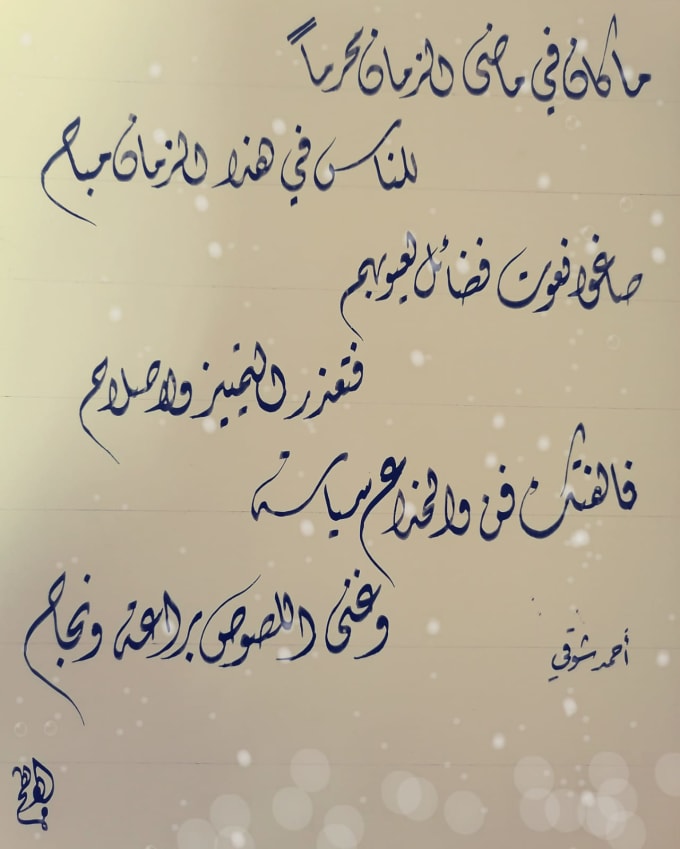 ما كان في ماضى الزمان محرماً
للناس في هذا الزمان مباح
صاغوا نعوت فضائل لعيوبهم
فتعذر التمييز ولاصلاح
فالفتك فن والخداع سياسة
وغنى اللصوص براعة ونجاح
أحمد شوقي